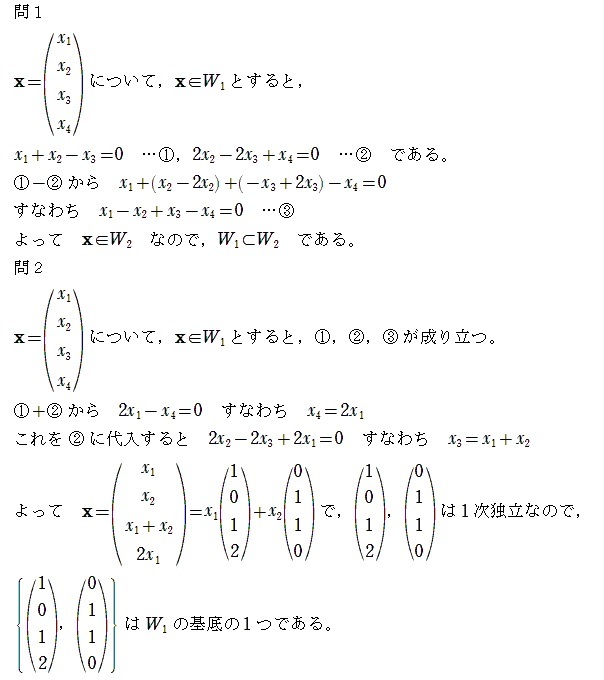 問1
𝐱=(x₁ x₂ x₃ x₄) について，𝐱∈W₁とすると，
x₁+x₂−x₃=0　…①，2x₂−2x₃+x₄=0　…②　である。
①−②から　x₁+(x₂−2x₂)+(−x₃+2x₃)−x₄=0
すなわち　x₁−x₂+x₃−x₄=0　…③
よって　𝐱∈W₂　なので，W₁⊂W₂　である。
問2
𝐱=(x₁ x₂ x₃ x₄) について，𝐱∈W₁とすると，①，②，③が成り立つ。
①+②から　2x₁−x₄=0　すなわち　x₄=2x₁
これを②に代入すると　2x₂−2x₃+2x₁=0　すなわち　x₃=x₁+x₂
よって　𝐱=(x₁ x₂ x₁+x₂ 2x₁)=x₁(1 0 1 2)+x₂(0 1 1 0)で，(1 0 1 2)，(0 1 1 0)は1次独立なので，
{(1 0 1 2)，(0 1 1 0)} はW₁の基底の1つである。